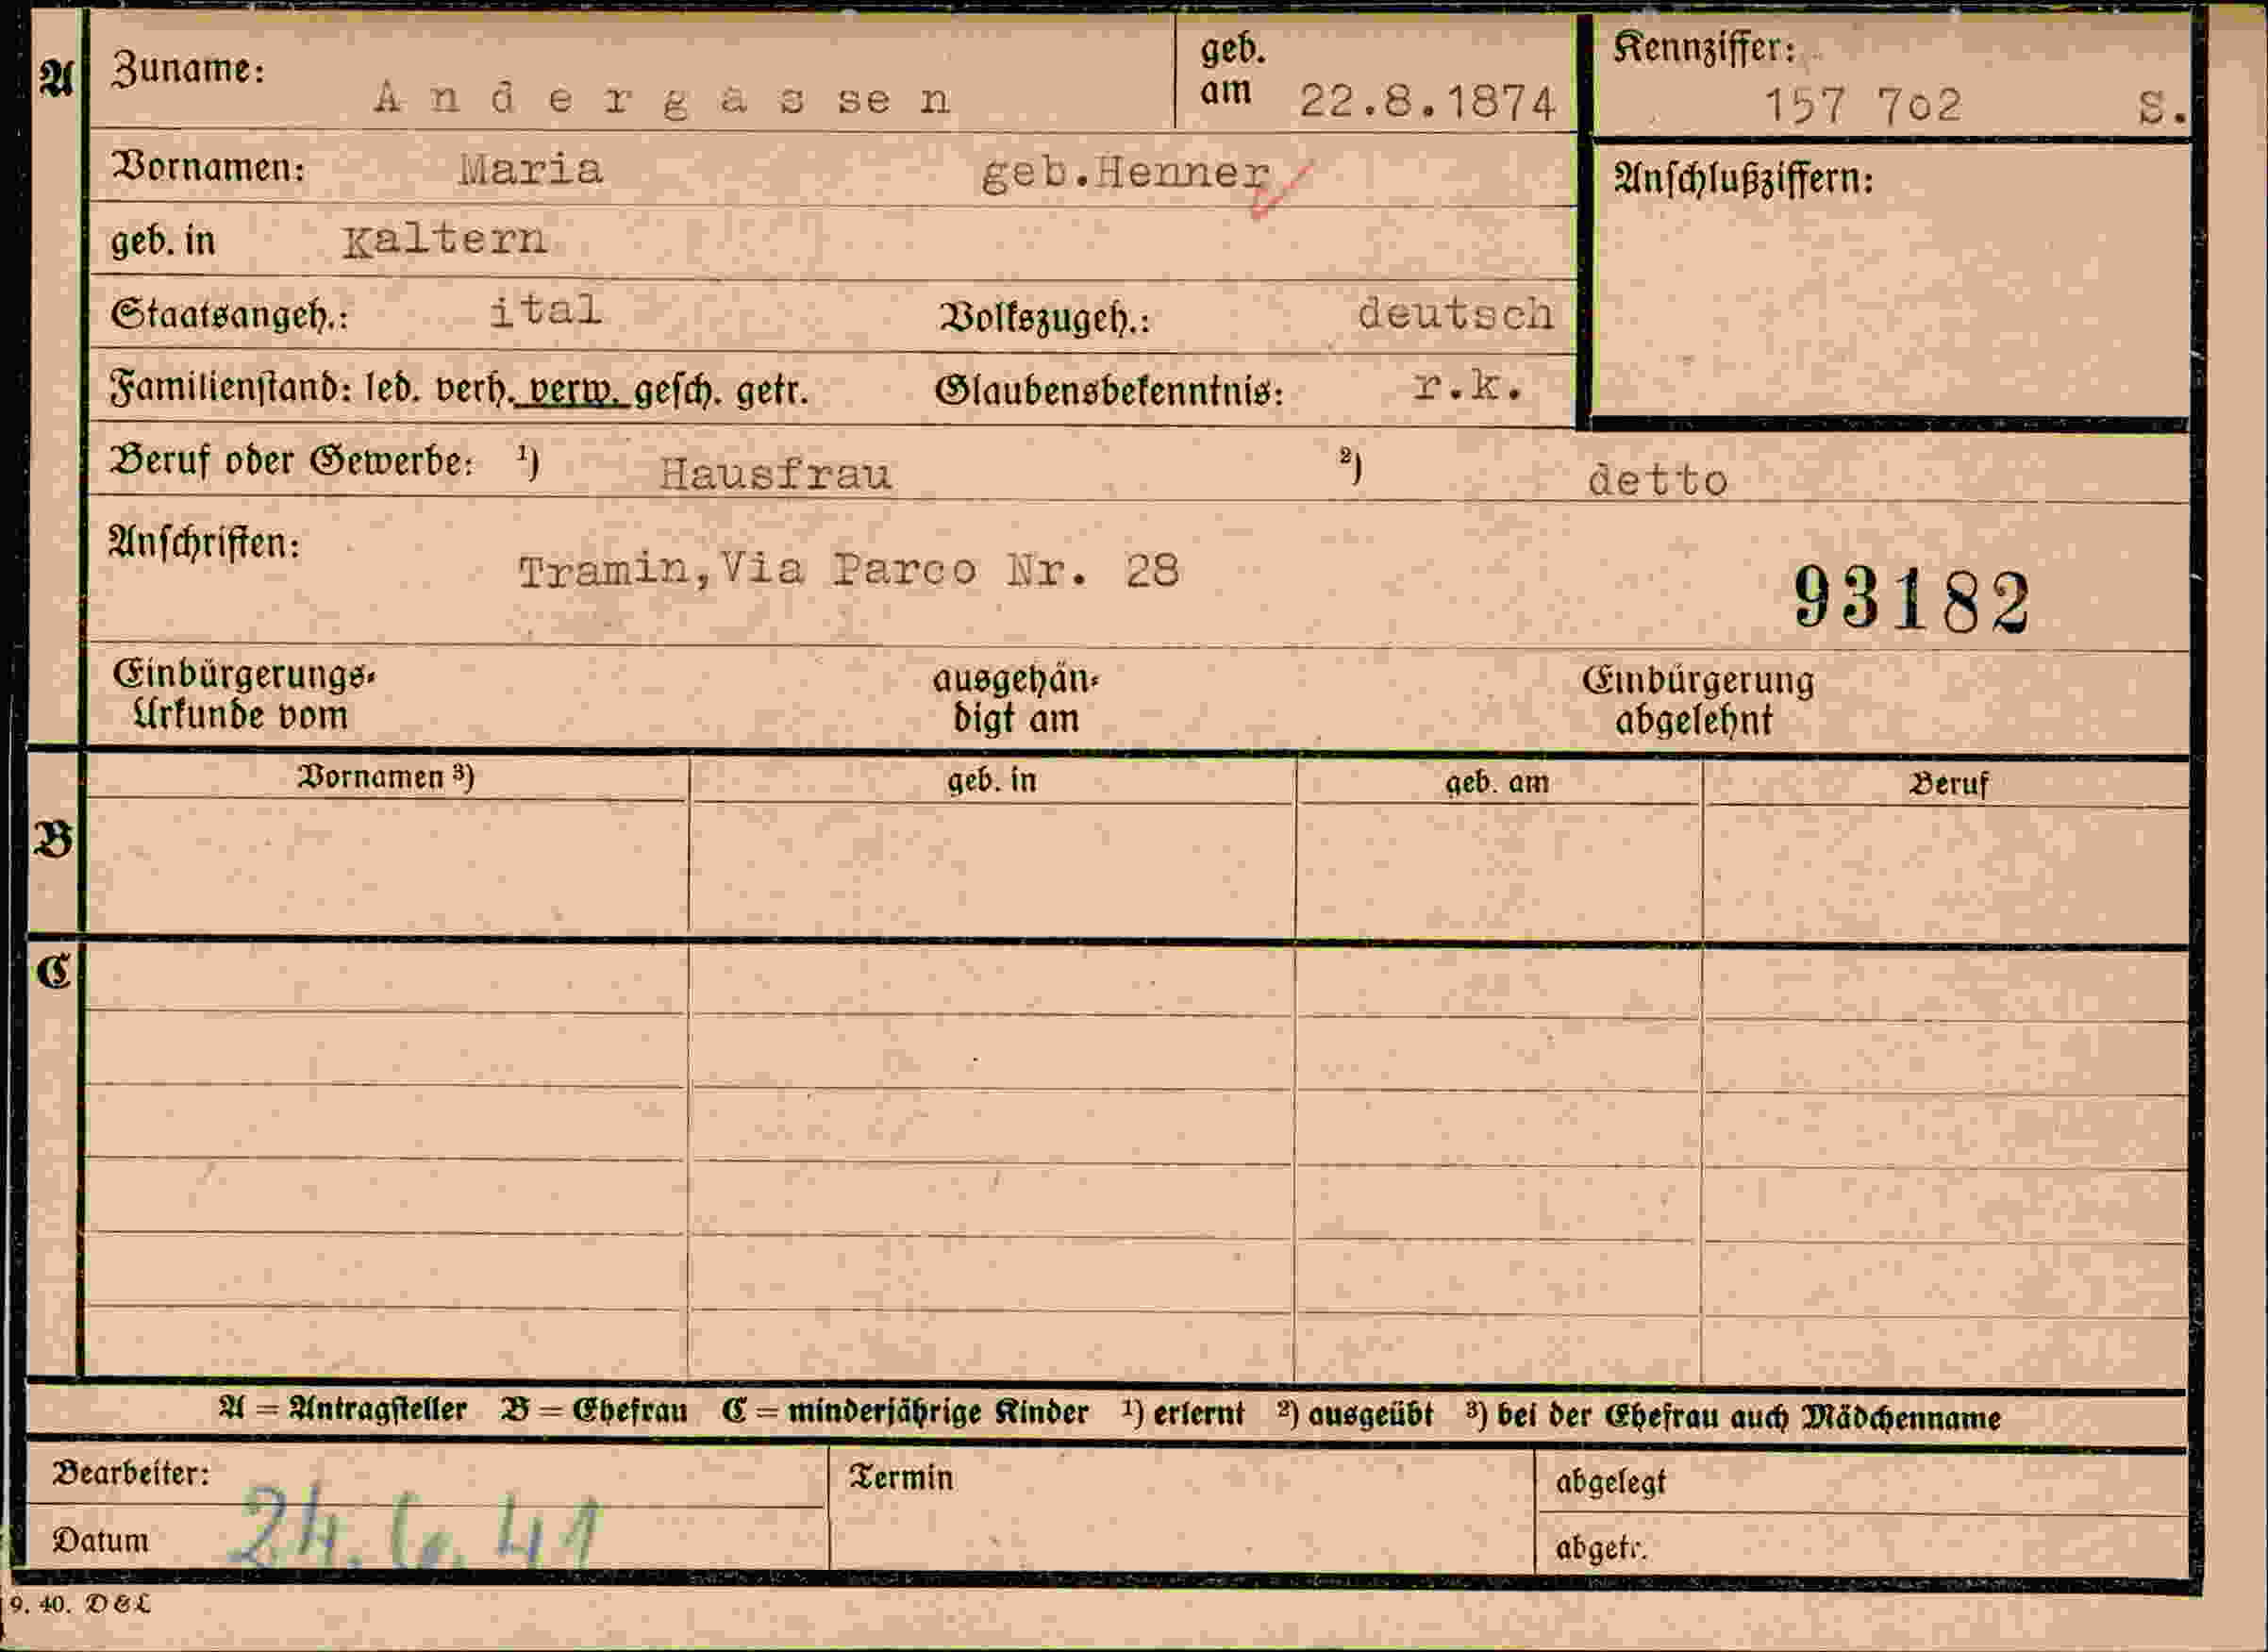 A Zuname: Andergassen geb. am 22.8.1874 Kennziffer: 157 702 S.
Vornamen: Maria geb.Henner Anschlußziffern:
geb. in Kaltern
Staatsangeh.: ital Volkszugeh.: deutsch
Familienstand: led. verh. verw. gesch. getr. Glaubensbekenntnis: r.k.
Beruf oder Gewerbe: ¹) Hausfrau ²) detto
Anschriften: Tramin,Via Parco Nr. 28 93182
Einbürgerungs- ausgehän- Einbürgerung
Urkunde vom digt am abgelehnt
Vornamen ³) geb. in geb. am Beruf
B
C
A = Antragsteller B = Ehefrau C = minderjährige Kinder ¹) erlernt ²) ausgeübt ³) bei der Ehefrau auch Mädchenname
Bearbeiter: Termin abgelegt
Datum 24. 6. 41 abgetr.
9. 40. D & L